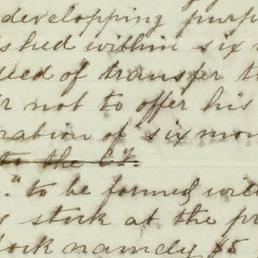 developping purp
ished within six m
deed of transfer t
r not to offer his
ration of "six mon
to the C.F.
." to be formed wil
s stock at the pr
tock namely $5